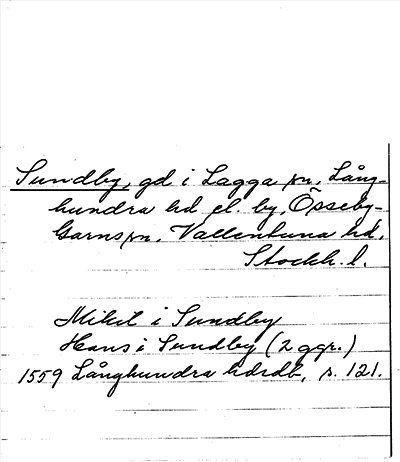 Sundby, gd i Lagga sn, Lång-
hundra hd el. by, Össeby-
Garns sn, Vallentuna hd,
Stockh. l.
Mikil i Sundby
Hans i Sundby (2 ggr.)
1559 Långhundra hdrdb, s. 121.